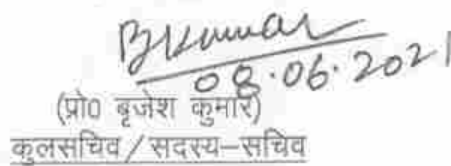 BKumar
08.06.2021
(प्रो0 बृजेश कुमार)
कुलसचिव/सदस्य-सचिव